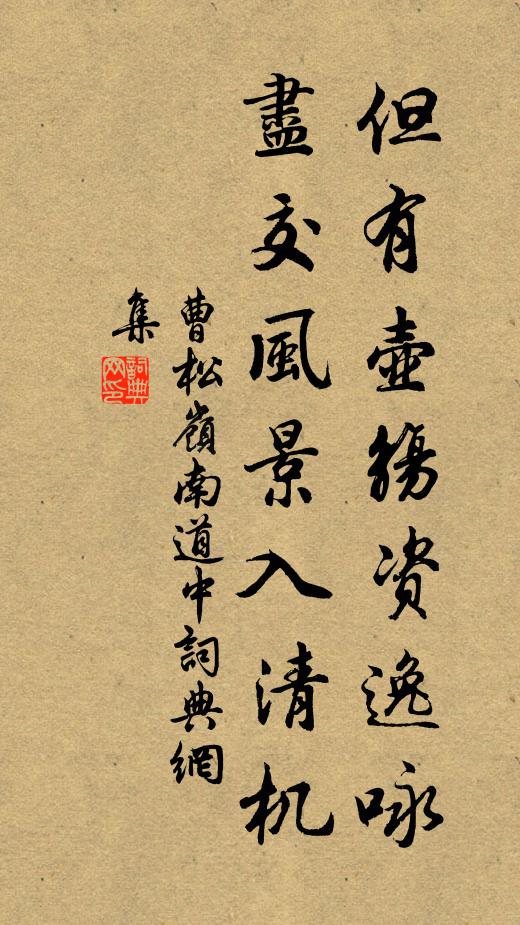 但有壺觴資逸咏
盡交風景入清机
曹松嶺南道中詞典網
集
詞典网印